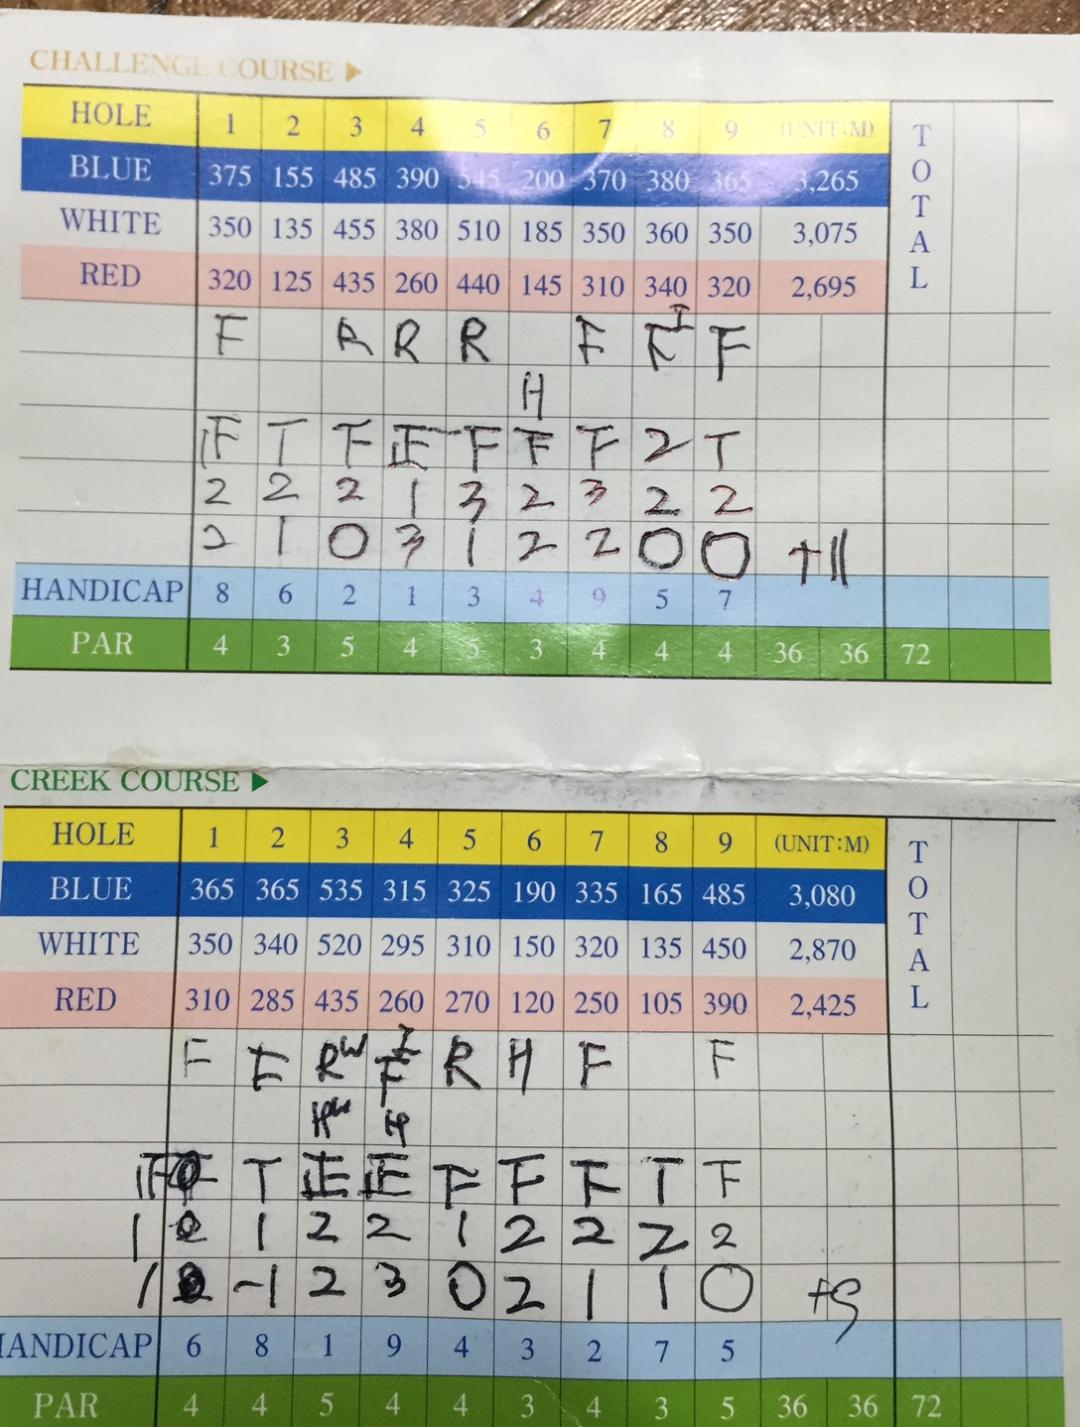 CHALLENGE COURSE ▶
HOLE 1 2 3 4 5 6 7 8 9 (UNIT:M) TOTAL
BLUE 375 155 485 390 545 200 370 380 365 3,265
WHITE 350 135 455 380 510 185 350 360 350 3,075
RED 320 125 435 260 440 145 310 340 320 2,695
F R R R F F I F
H
F T F F F F F 2 T
2 2 2 1 3 2 3 2 2
2 1 0 3 1 2 2 0 0 +11
HANDICAP 8 6 2 1 3 4 9 5 7
PAR 4 3 5 4 5 3 4 4 4 36 36 72
CREEK COURSE ▶
HOLE 1 2 3 4 5 6 7 8 9 (UNIT:M) TOTAL
BLUE 365 365 535 315 325 190 335 165 485 3,080
WHITE 350 340 520 295 310 150 320 135 450 2,870
RED 310 285 435 260 270 120 250 105 390 2,425
F F RW F I R H F F
H
T F F F T F
1 1 2 2 1 2 2 2 2
1 -1 2 3 0 2 1 1 0 +9
HANDICAP 6 8 1 9 4 3 2 7 5
PAR 4 4 5 4 4 3 4 3 5 36 36 72